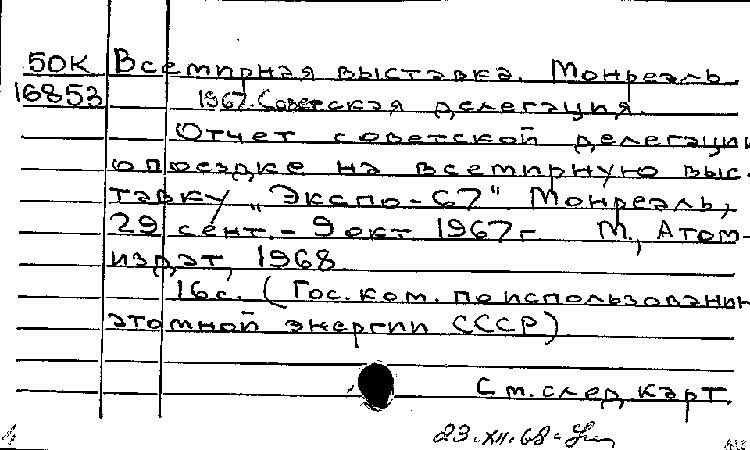 50К Всемирная выставка. Монреаль.
16853 1967. Советская делегация.
Отчет советской делегации
о поездке на всемирную выс-
тавку "Экспо-67" Монреаль,
29 сент. - 9 окт 1967г. М., Атом-
издат, 1968
16с. (Гос. ком. по использовании
атомной энергии СССР)
См. след. карт.
23.XII.68.